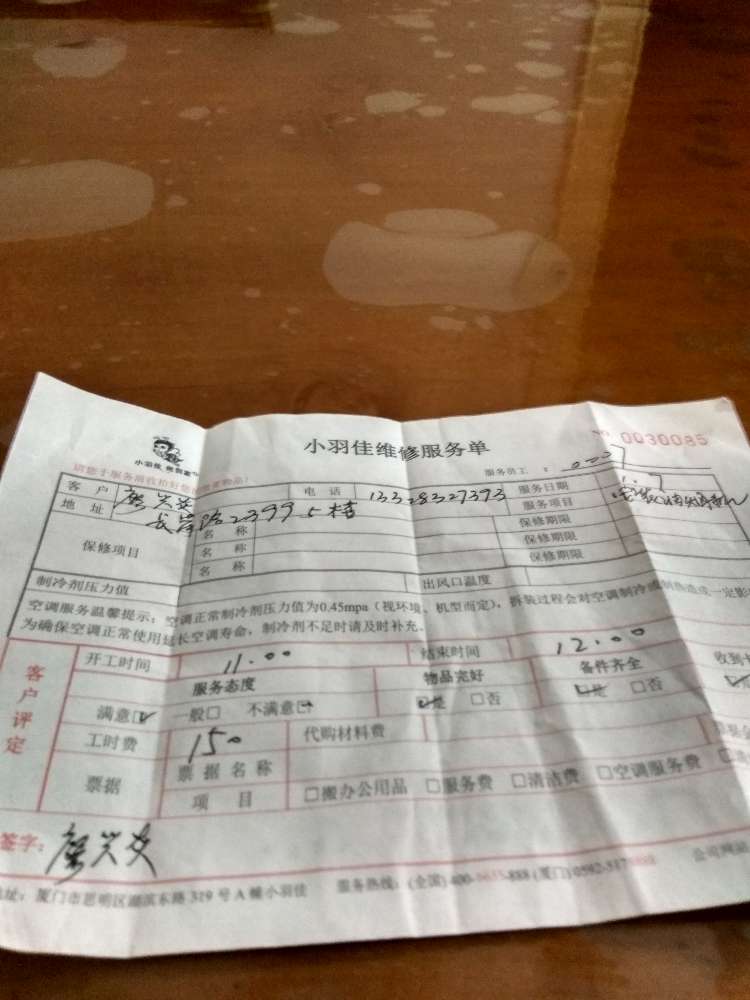 小羽佳维修服务单
№ 0030085
小羽佳
服务员工：
请您于服务前收拾好您的贵重物品！
客户 电话 13328327373 服务日期 1.7
地址 长岸路2399 5楼 服务项目
保修项目 名称 保修期限
名称 保修期限
名称 保修期限
制冷剂压力值 出风口温度
空调服务温馨提示：空调正常制冷剂压力值为0.45mpa（视环境、机型而定），拆装过程会对空调制冷或制热造成一定影
为确保空调正常使用延长空调寿命，制冷剂不足时请及时补充。
客户评定
开工时间 11.00 结束时间 12.00
服务态度 物品完好 备件齐全 收到
满意☑ 一般□ 不满意□ ☑是 □否 ☑是 □否
工时费 150 代购材料费
票据 票据名称
项目 □搬办公用品 □服务费 □清洁费 □空调服务费
签字：
地址：厦门市思明区湖滨东路319号A幢小羽佳 服务热线：(全国) 400-0655-888 (厦门) 公司网站